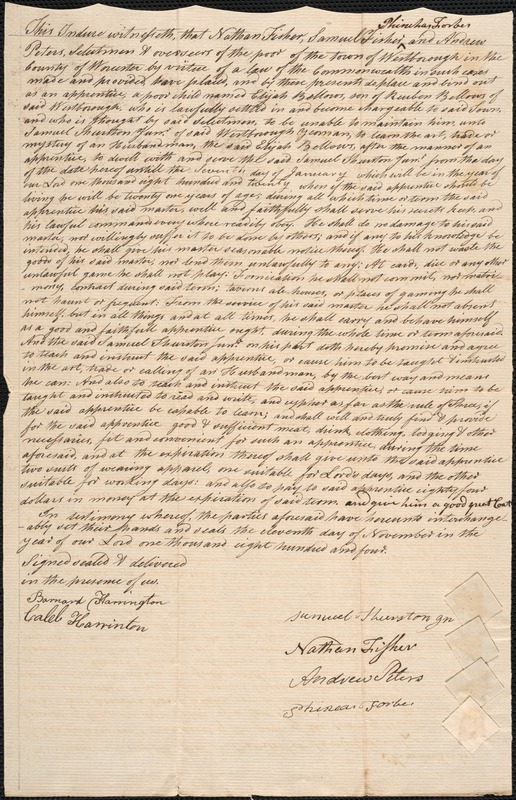 Phinehas Forbes
This Indure witnesseth, that Nathan Fisher, Samuel Fisher, ^ and Andrew
Peters, Selectmen & overseers of the poor of the town of Westborough in the
County of Worcester by virtue of a law of the Commonwealth in such case
made and provided have placed, and by these presents do place and bind out
as an apprentice, a poor child named Elijah Bellows, son of Reuben Bellows of
said Westborough, who is lawfully settled in and become chargeable to said Town,
and who is thought by said Selectmen, to be unable to maintain him, unto
Samuel Thurston Junr. of said Westborough Yeoman; to learn the art, trade or
mystery of an Husbandman, the said Elijah Bellows, after the manner of an
apprentice, to dwell with and serve the said Samuel Thurston Junr. from the day
of the date hereof untill the Seventh day of January which will be in the year of
our Lord one thousand eight hundred and twenty when if the said apprentice should be
living he will be twenty one years of age; during all which time or term the said
apprentice his said master, well and faithfully shall serve his secrets keep, and
his lawful commands every where readily obey. He shall do no damage to his said
master, nor willingly suffer it to be done by others; and if any to his knowledge be
intended, he shall give his master seasonable notice thereof. He shall not waste the
goods of his said master, nor lend them unlawfully to any; At cards, dice or any other
unlawful game he shall not play: Fornication he shall not commit, nor matri-
mony contract during said term; taverns ale houses, or places of gaming he shall
not haunt or frequent: From the service of his said master he shall not absent
himself, but in all things and at all times, he shall carry and behave himself
as a good and faithful apprentice ought, during the whole time or term aforesaid.
And the said Samuel Thurston Junr. on his part doth hereby promise and agree
to teach and instruct the said apprentice, or cause him to be taught & instructed
in the art, trade or calling of an Husbandman, by the best way and means
he can: And also to teach and instruct the said apprentice or cause him to be
taught and instructed to read and write, and cypher as far as the rule of Three, if
the said apprentice be capable to learn; and shall well and truly find & provide
for the said apprentice good & sufficient meat, drink clothing, lodging & other
necessaries, fit and convenient for such an apprentice during the time
aforesaid, and at the expiration thereof shall give unto the said apprentice
two suits of wearing apparel, one suitable for Lords days, and the other
suitable for working days: and also to pay to said apprentice eighty four
dollars in money at the expiration of said term and give him a good great Coat
In testimony whereof, the parties aforesaid have hereunto interchange-
-ably set their hands and seals the eleventh day of November in the
year of our Lord one thousand eight hundred and four.
Signed sealed & delivered
in the presence of us.
Barnard Harrington
Caleb Harrinton
Samuel Thurston Jn
Nathan Fisher
Andrew Peters
Phineas Forbes